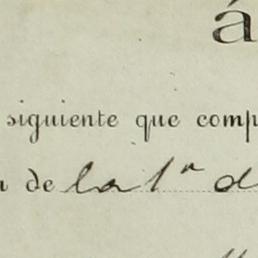 á
siguiente que comp
de la 1ª d